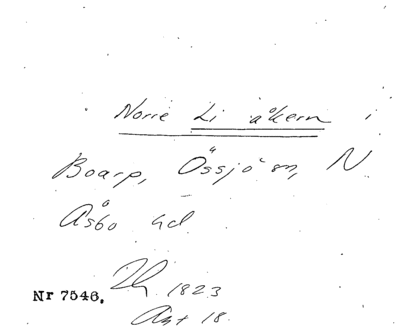 Norre Li åkern i
Boarp, Össjö sn, N
Åsbo hd
Nr 7546. 1823
Ant 18.